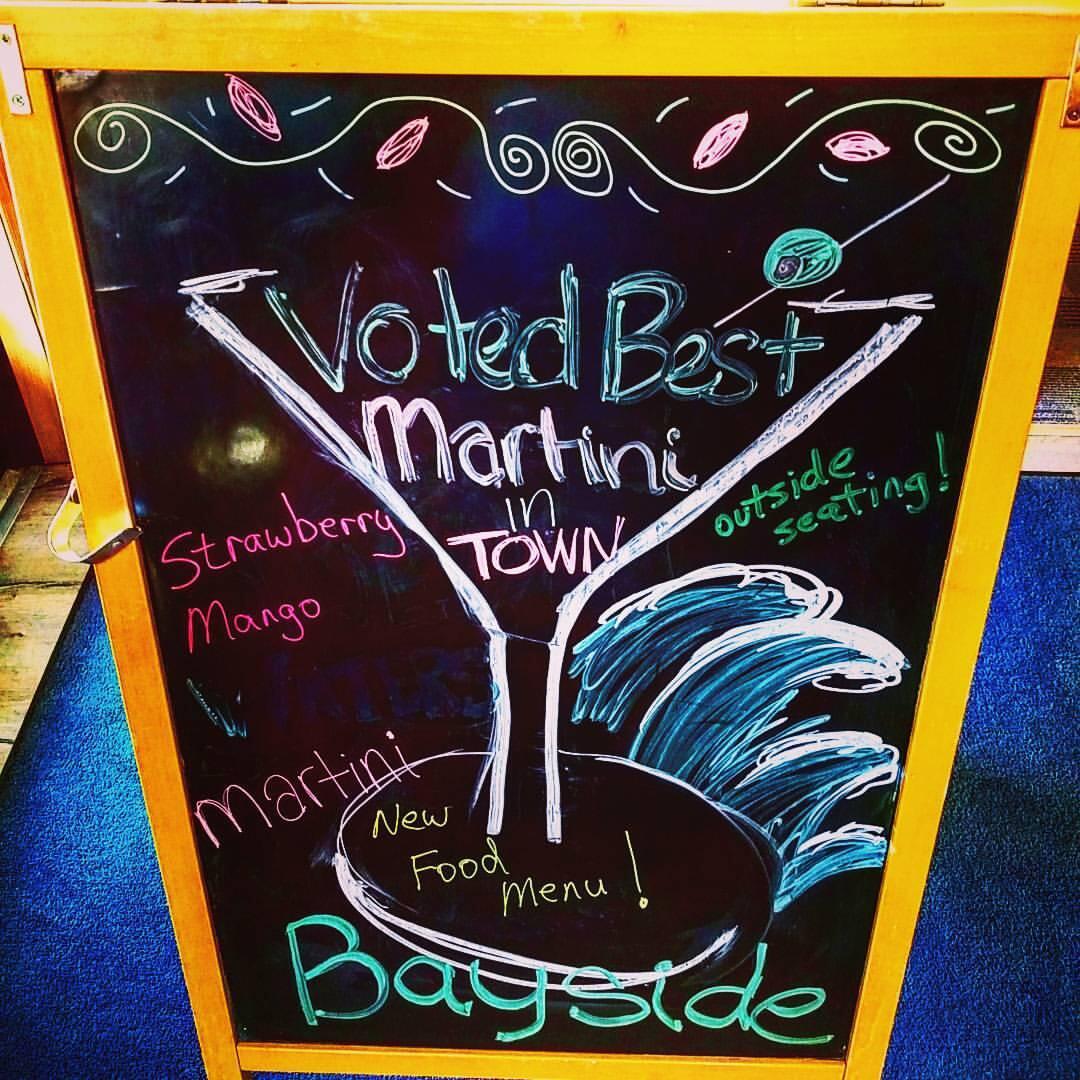 Voted Best
Martini
in
TOWN
outside
seating!
Strawberry
Mango
Martini
New
Food
Menu!
Bayside